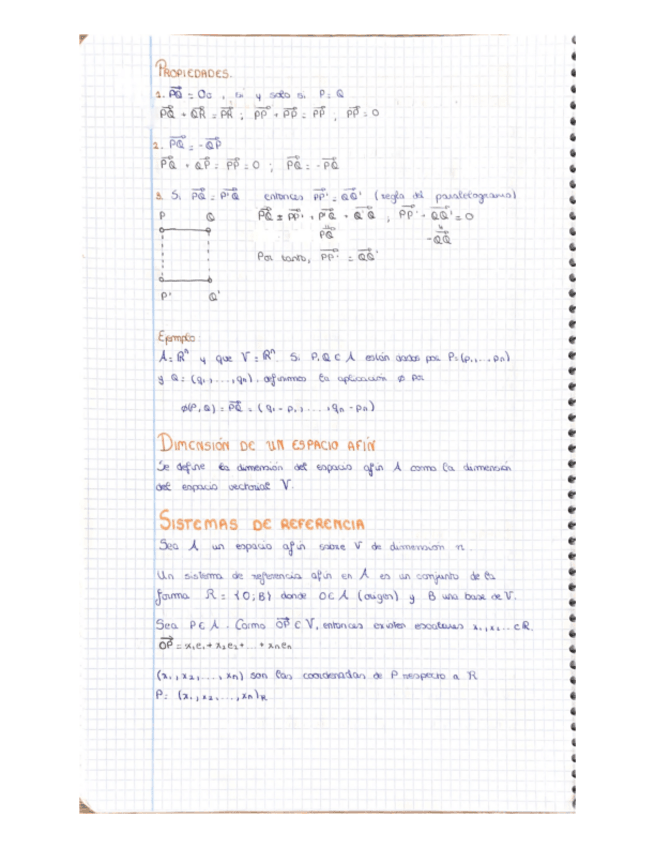 PROPIEDADES.
1. PQ = 0v , si y solo si P = Q
PQ + QR = PR ; PP + PP = PP , PP = 0
2. PQ = -QP
PQ + QP = PP = 0 ; PQ = -PQ
3. Si PQ = P'Q' entonces PP' = QQ' (regla del paralelogramo)
P Q PQ = PP' + P'Q' + Q'Q ; PP' - QQ' = 0
PQ -QQ'
Por tanto, PP' = QQ'
P' Q'
Ejemplo:
A = Rⁿ y que V = Rⁿ. Si P, Q ∈ A están dados por P = (p₁, ... pn)
y Q = (q₁, ..., qn), definimos la aplicación ø por
ø(P, Q) = PQ = (q₁ - p₁, ..., qn - pn)
DIMENSIÓN DE UN ESPACIO AFÍN
Se define la dimensión del espacio afín A como la dimensión
del espacio vectorial V.
SISTEMAS DE REFERENCIA
Sea A un espacio afín sobre V de dimensión n.
Un sistema de referencia afín en A es un conjunto de la
forma R = {O; B} donde O ∈ A (origen) y B una base de V.
Sea P ∈ A. Como OP ∈ V, entonces existen escalares x₁, x₂ ... ∈ R.
OP = x₁e₁ + x₂e₂ + ... + xnen
(x₁, x₂, ..., xn) son las coordenadas de P respecto a R
P = (x₁, x₂, ..., xn)R